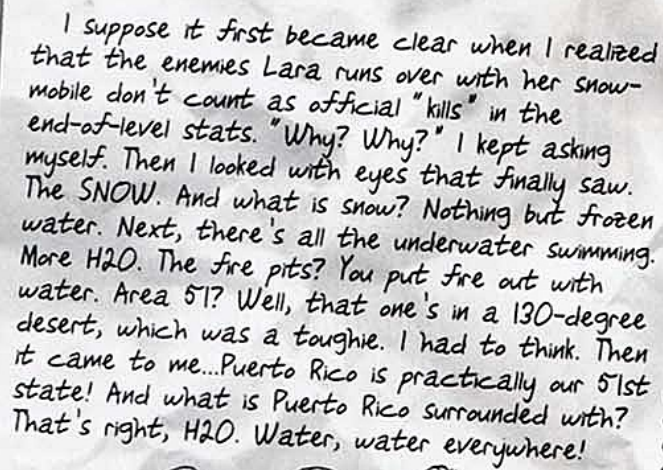 I suppose it first became clear when I realized
that the enemies Lara runs over with her snow-
mobile don't count as official "kills" in the
end-of-level stats. "Why? Why?" I kept asking
myself. Then I looked with eyes that finally saw.
The SNOW. And what is snow? Nothing but frozen
water. Next, there's all the underwater swimming.
More H2O. The fire pits? You put fire out with
water. Area 51? Well, that one's in a 130-degree
desert, which was a toughie. I had to think. Then
it came to me...Puerto Rico is practically our 51st
state! And what is Puerto Rico surrounded with?
That's right, H2O. Water, water everywhere!